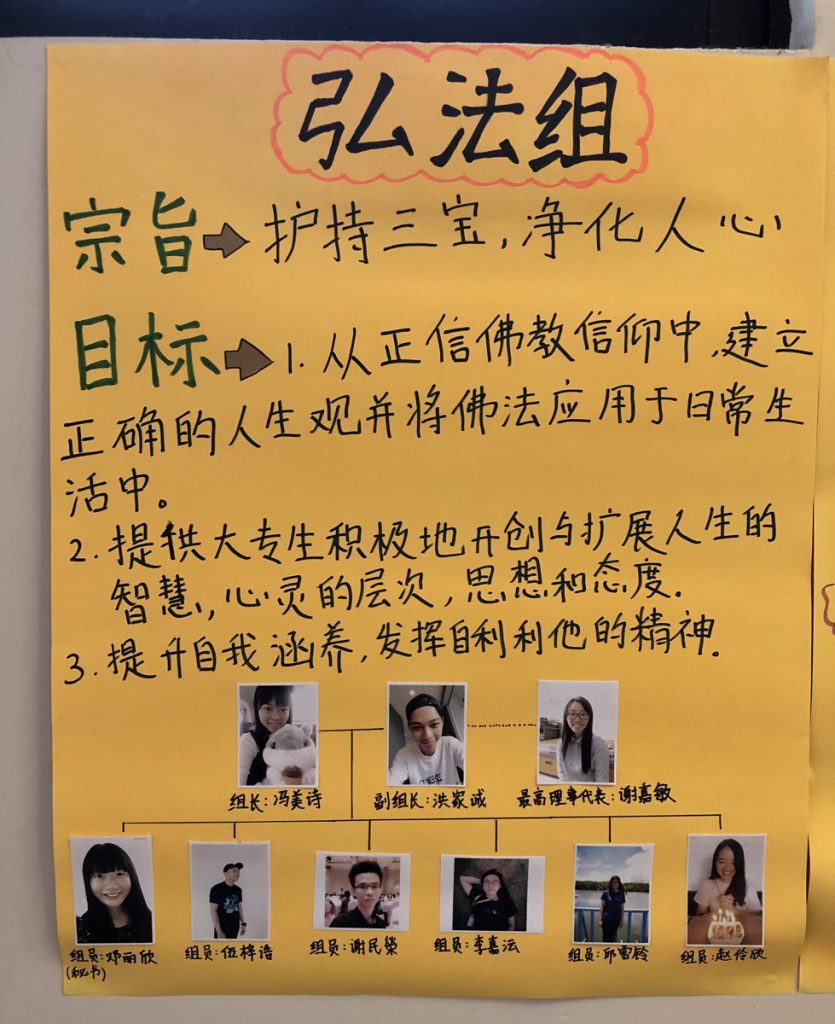 弘法组
宗旨 护持三宝,净化人心
目标 1. 从正信佛教信仰中,建立
正确的人生观并将佛法应用于日常生
活中。
2. 提供大专生积极地开创与扩展人生的
智慧,心灵的层次,思想和态度.
3. 提升自我涵养,发挥自利利他的精神.
组长:冯美诗
副组长:洪家诚
最高理事代表:谢嘉敏
组员:邓丽欣
(秘书)
组员:伍梓浩
组员:谢民荣
组员:李嘉沄
组员:邱雪龄
组员:赵伶欣